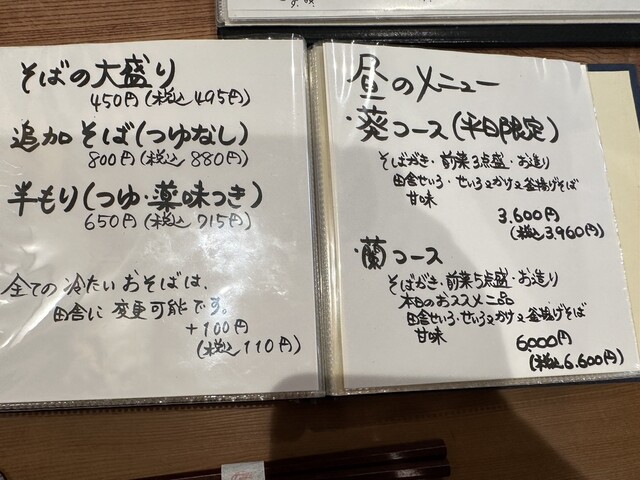 そばの大盛り
450円(税込495円)
追加そば(つゆなし)
800円(税込 880円)
半もり(つゆ・薬味つき)
650円(税込 715円)
全ての 冷たい おそばは、
田舎に 変更可能です。
+100円
(税込110円)
昼のメニュー
・葵コース(平日限定)
そばがき・前菜3点盛・お造り
田舎せいろ・せいろ又かけ又釜揚げそば
甘味
3.600円
(税込3.960円)
蘭コース
そばがき・前菜5点盛・お造り
本日のおススメ二品
田舎せいろ・せいろ又かけ又釜揚げそば
甘味
6,000円
(税込6.600円)